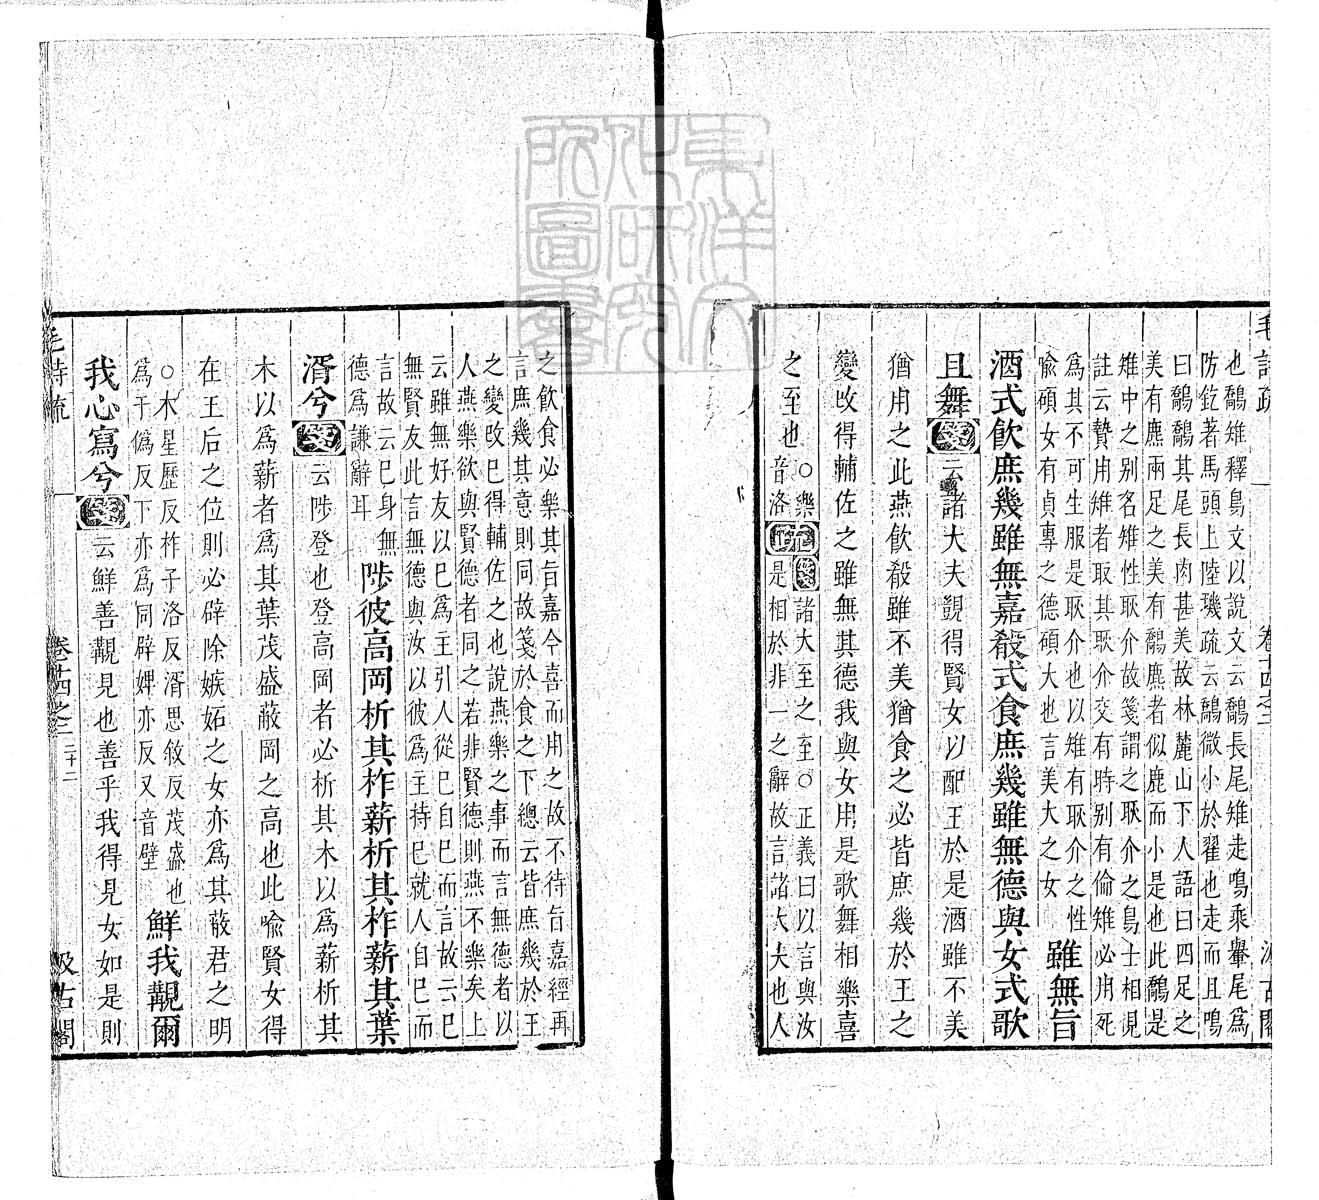 也鷮雉釋鳥文以說文云鷮長尾雉走鳴乘轝尾爲
防釳著馬頭上陸璣疏云鷮微小於翟也走而且鳴
曰鷮鷮其尾長肉甚美故林麓山下人語曰四足之
美有麃兩足之美有鷮麃者似鹿而小是也此鷮是
雉中之别名雉性耿介故箋謂之耿介之鳥士相見
註云贄用雉者取其耿介交有時别有倫雉必用死
爲其不可生服是耿介也以雉有耿介之性
喩碩女有貞專之德碩大也言美大之女
雖無旨
酒式飲庶幾雖無嘉殽式食庶幾雖無德與女式歌
且舞箋云諸大夫覬得賢女以配王於是酒雖不美
猶用之此燕飲殽雖不美猶食之必皆庶幾於王之
變改得輔佐之雖無其德我與女用是歌舞相樂喜
之至也
○樂
音洛
疏
正
箋諸大至之至○正義曰以言與汝
是相於非一之辭故言諸大夫也人
之飲食必樂其旨嘉今喜而用之故不待旨嘉經再
言庶幾其意則同故箋於食之下總云皆庶幾於王
之變改巳得輔佐之也說燕樂之事而言無德者以
人燕樂欲與賢德者同之若非賢德則燕不樂矣上
云雖無好友以巳爲主引人從巳自巳而言故云巳
無賢友此言無德與汝以彼爲主持巳就人自巳而
言故云巳身無
德爲謙辭耳
陟彼高岡析其柞薪析其柞薪其葉
湑兮箋云陟登也登高岡者必析其木以爲薪析其
木以爲薪者爲其葉茂盛蔽岡之高也此喩賢女得
在王后之位則必辟除嫉妬之女亦爲其蔽君之明
○木星歷反柞子洛反湑思敘反茂盛也
爲于僞反下亦爲同辟婢亦反又音壁
鮮我覯爾
我心寫兮箋云鮮善覯見也善乎我得見女如是則
毛詩疏
卷十四之二
二十二
汲古閣